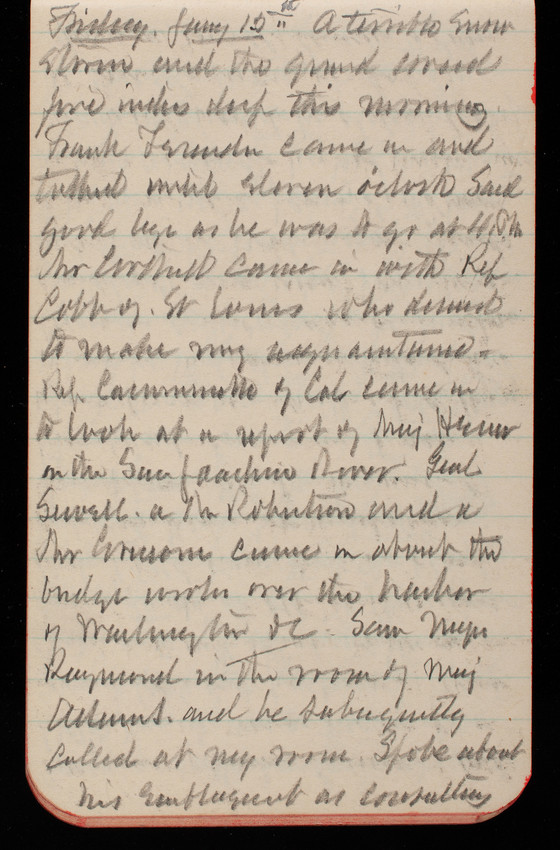 Friday. Jany 15th A terrible Snow
Storm and the ground covered
five inches deep this morning.
Frank came in and
talked until eleven o'clock Said
good bye as he was to go at
Mr came in with Rep
Cobb of. St Louis who desired
to make my acquaintance.
Rep. Caminetti of Cal came in
to look at a report of Maj. Heuer
on the San Joachin River. Genl
Sewell. a Mr Robertson and a
Mr came in about the
bridge over the harbor
of Washington DC. Saw
Raymond in the room of Maj
Adams. and he subsequently
called at my room. Spoke about
his as consulting